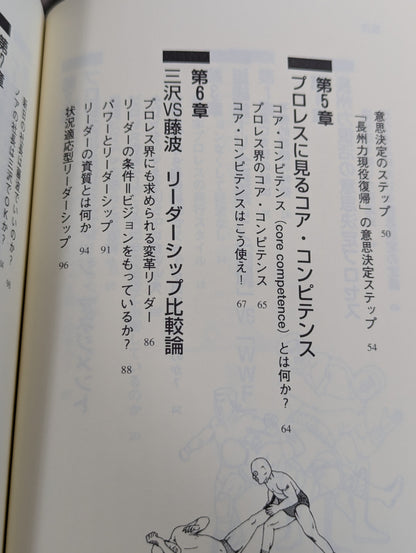 意思決定のステップ 50
「長州力現役復帰」の意思決定ステップ 54
第5章
プロレスに見るコア・コンピテンス
コア・コンピテンス(core competence)とは何か? 64
プロレス界のコア・コンピテンス 65
コア・コンピテンスはこう使え! 67
第6章
三沢VS藤波 リーダーシップ比較論
プロレス界にも求められる変革リーダー 86
リーダーの条件=ビジョンをもっているか? 88
パワーとリーダーシップ 91
リーダーの資質とは何か 94
状況適応型リーダーシップ 96